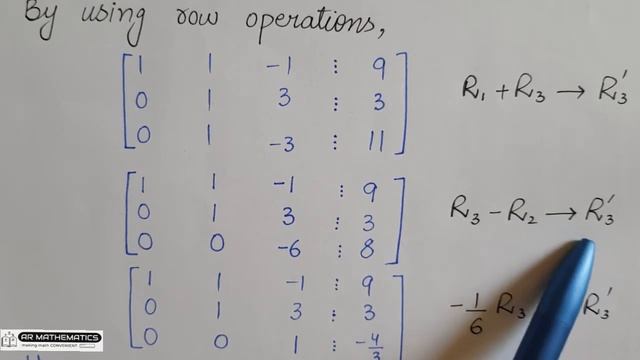 By using row operations,
[ 1 1 -1 ⋮ 9
0 1 3 ⋮ 3
0 1 -3 ⋮ 11 ]
R₁ + R₃ → R₃′
[ 1 1 -1 ⋮ 9
0 1 3 ⋮ 3
0 0 -6 ⋮ 8 ]
R₃ - R₂ → R₃′
[ 1 1 -1 ⋮ 9
0 1 3 ⋮ 3
0 0 1 ⋮ -4/3 ]
-1/6 R₃ R₃′
AR MATHEMATICS
making math CONVENIENT